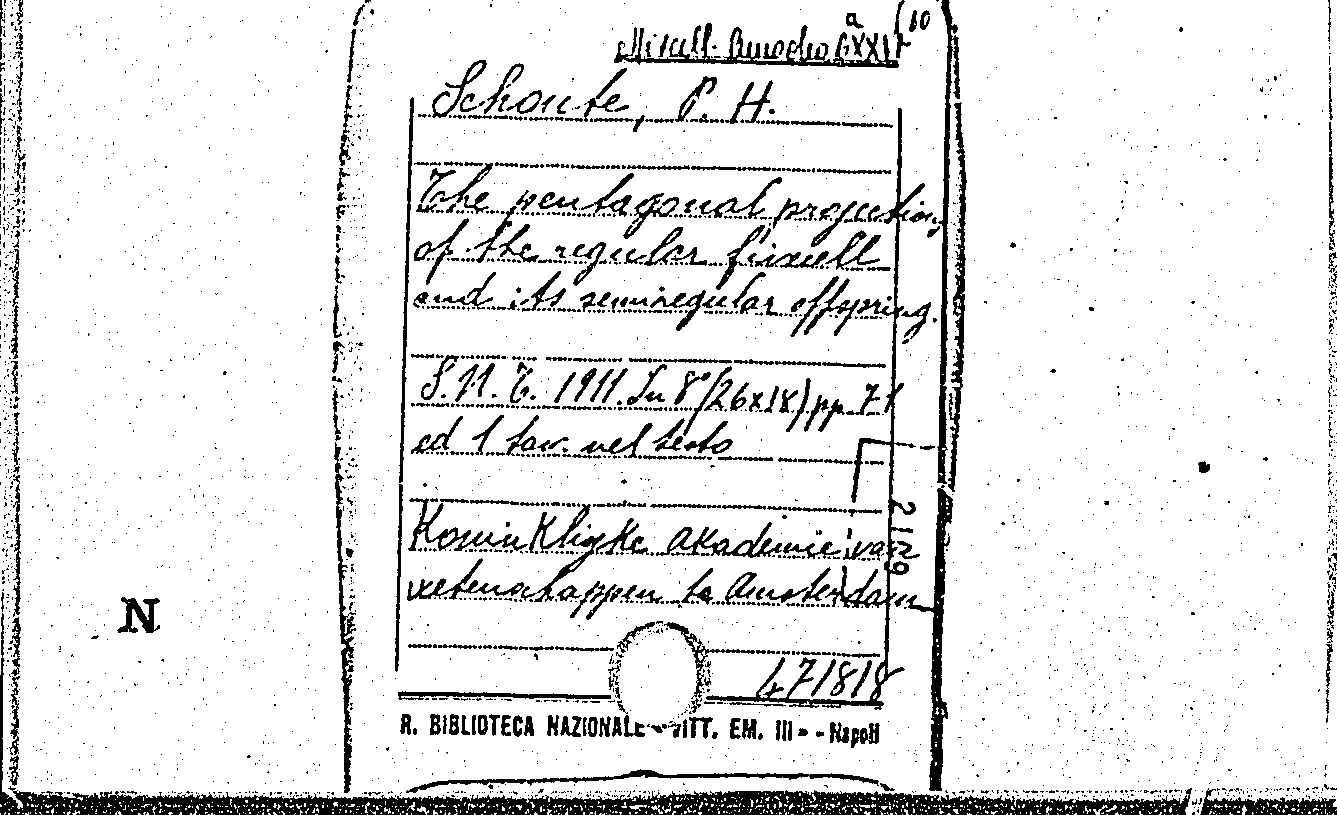 Miscell. a (10
Schoute, P. H.
The pentagonal projections
of the regular fivecell
and its semiregular offspring.
S. N. T. 1911. In 8° (26x18) pp. 71
ed 1 tav. nel testo
Koninklijke Akademie van
wetenschappen te Amsterdam
2119
471818
R. BIBLIOTECA NAZIONALE VITT. EM. III - - Napoli
N